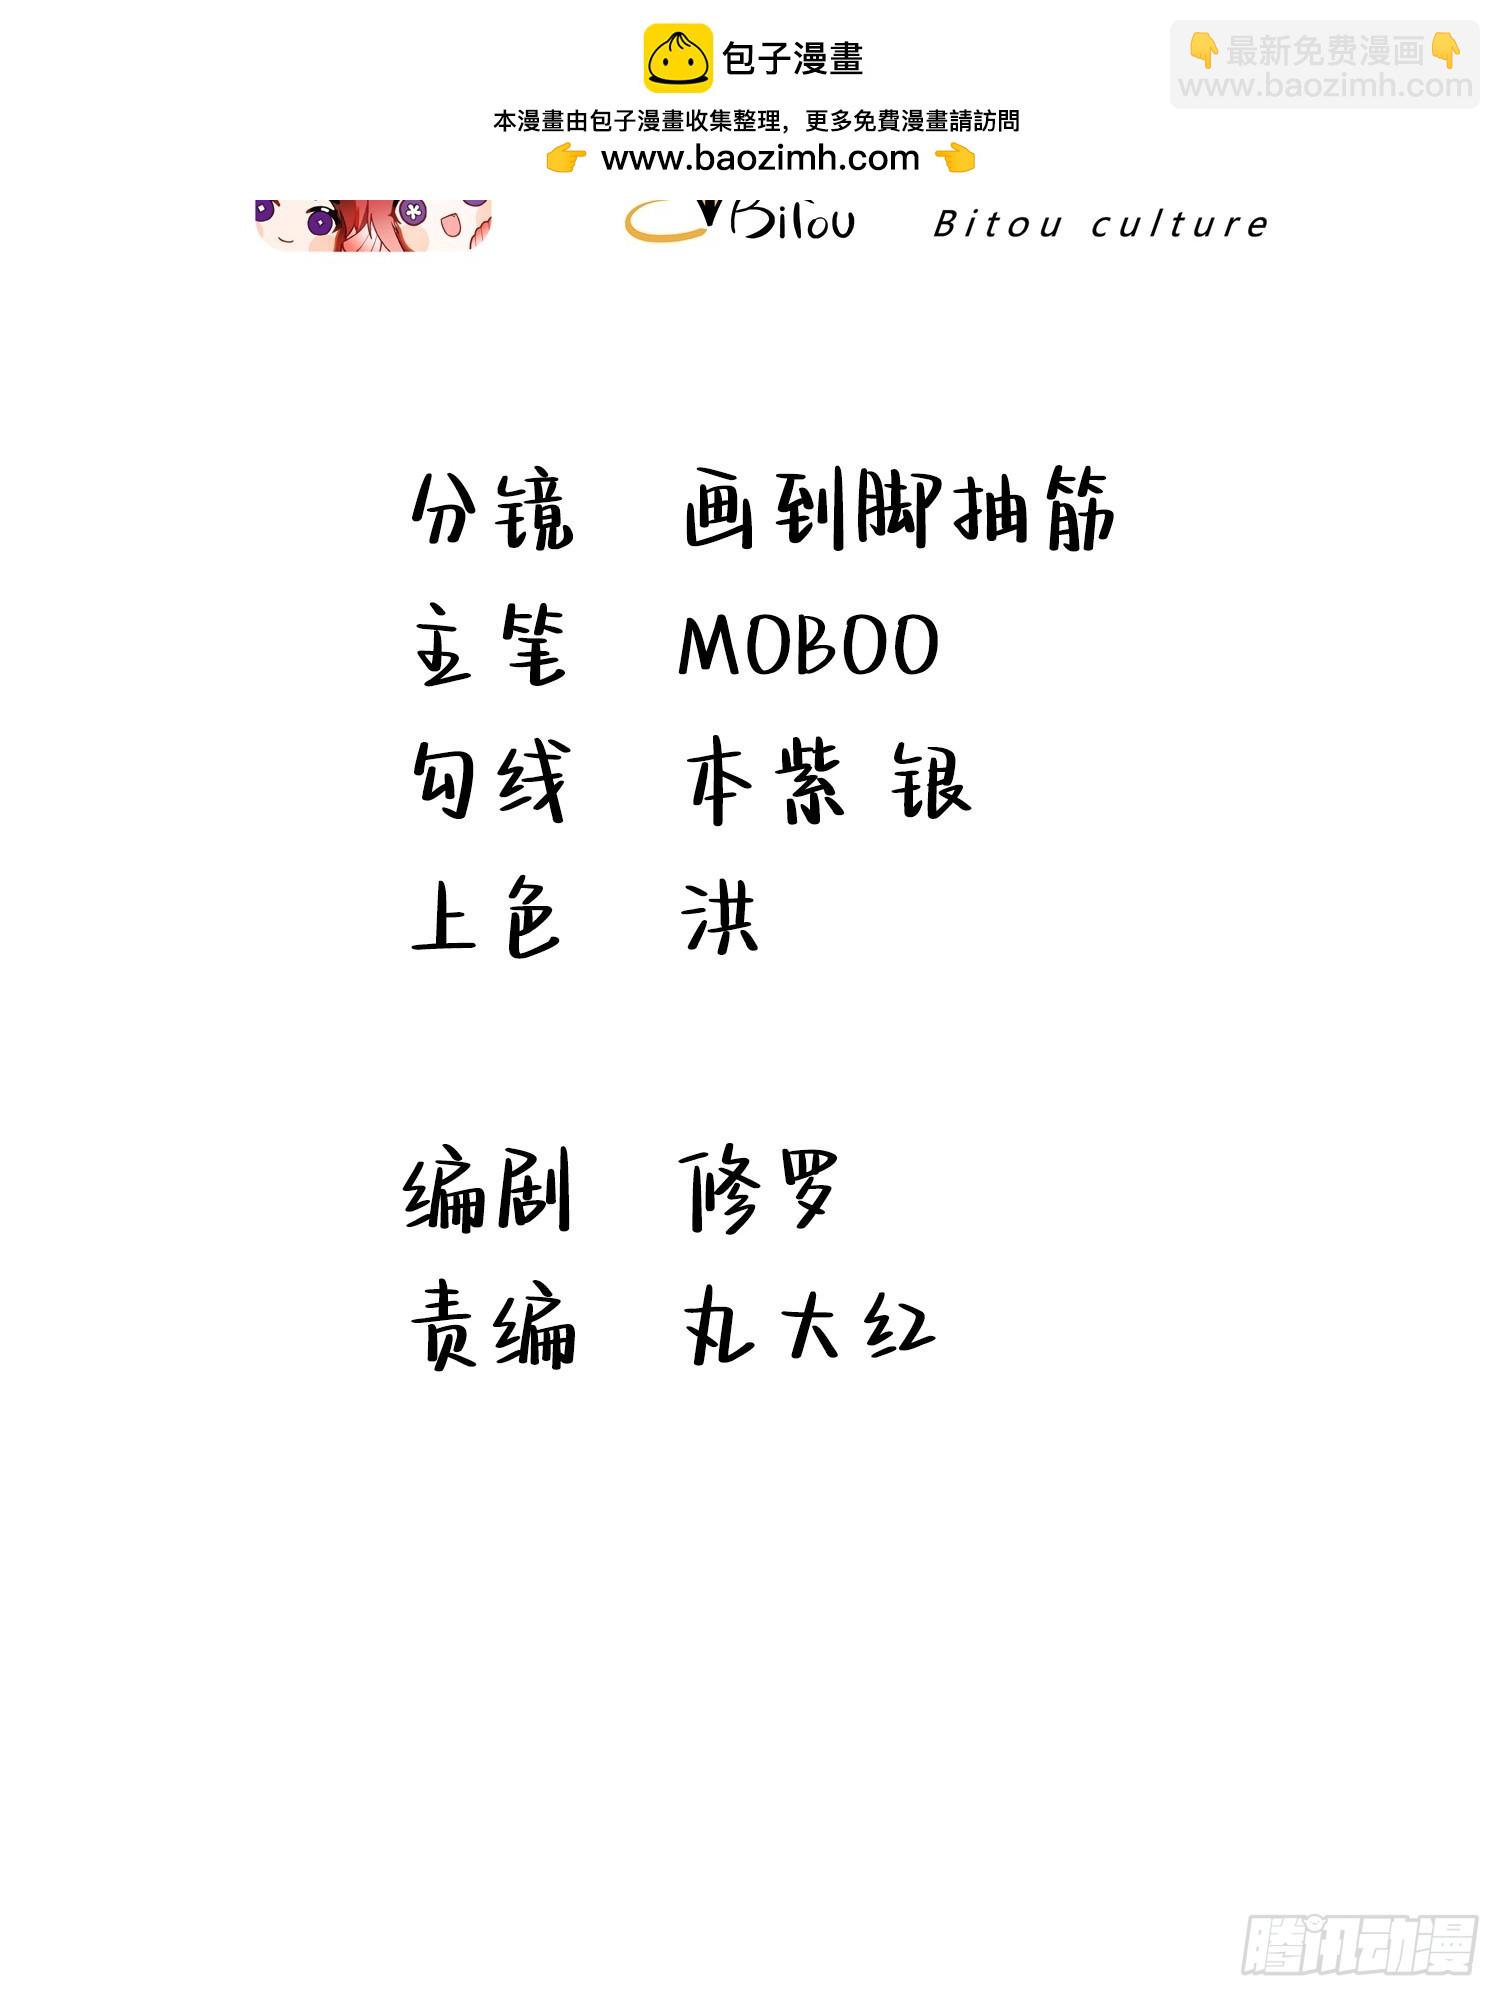 包子漫畫
👇最新免费漫画👇
www.baozimh.com
本漫畫由包子漫畫收集整理，更多免費漫畫請訪問
👉 www.baozimh.com 👈
Bitou Bitou culture
分镜 画到脚抽筋
主笔 MOBOO
勾线 本紫 银
上色 洪
编剧 修罗
责编 丸大红
腾讯动漫